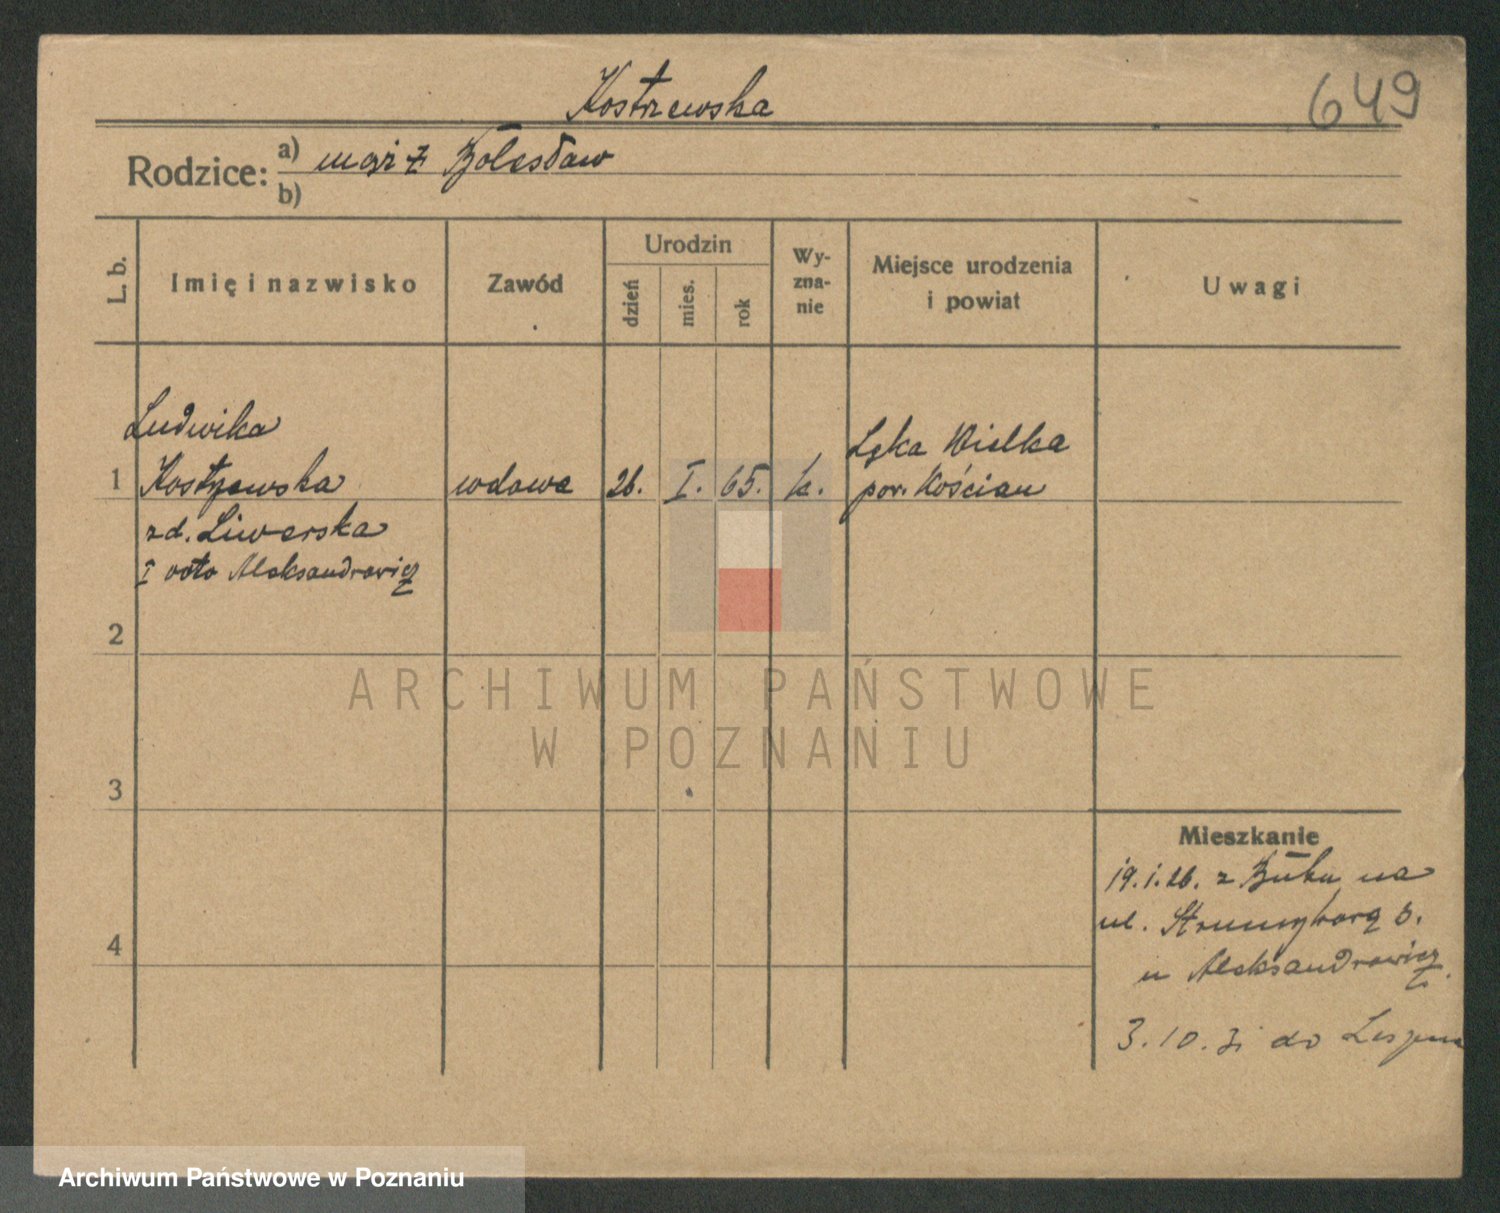 Kostrzewska
649
Rodzice: a) mąż Ɨ Bolesław
b)
L. b.
Imię i nazwisko
Zawód
Urodzin
dzień
mies.
rok
Wy-
zna-
nie
Miejsce urodzenia
i powiat
Uwagi
Ludwika
1 Kostrzewska wdowa 26. I. 65. k. Łęka Wielka
pow. Kościan
zd. Liwerska
I voto Aleksandrowicz
2
3
4
Mieszkanie
19.1.26. z Buku na
ul. 3.
u Aleksandrowicz.
3.10.31 do
ARCHIWUM PAŃSTWOWE
W POZNANIU
Archiwum Państwowe w Poznaniu